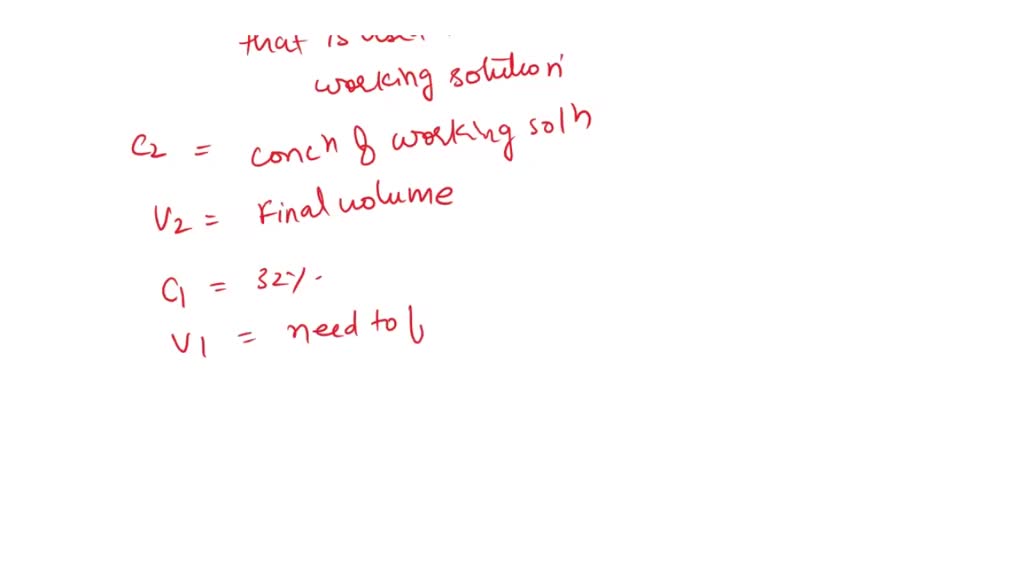 that is
working solution
C2 = conc^n of working sol^n
V2 = Final volume
C1 = 32%.
V1 = need to